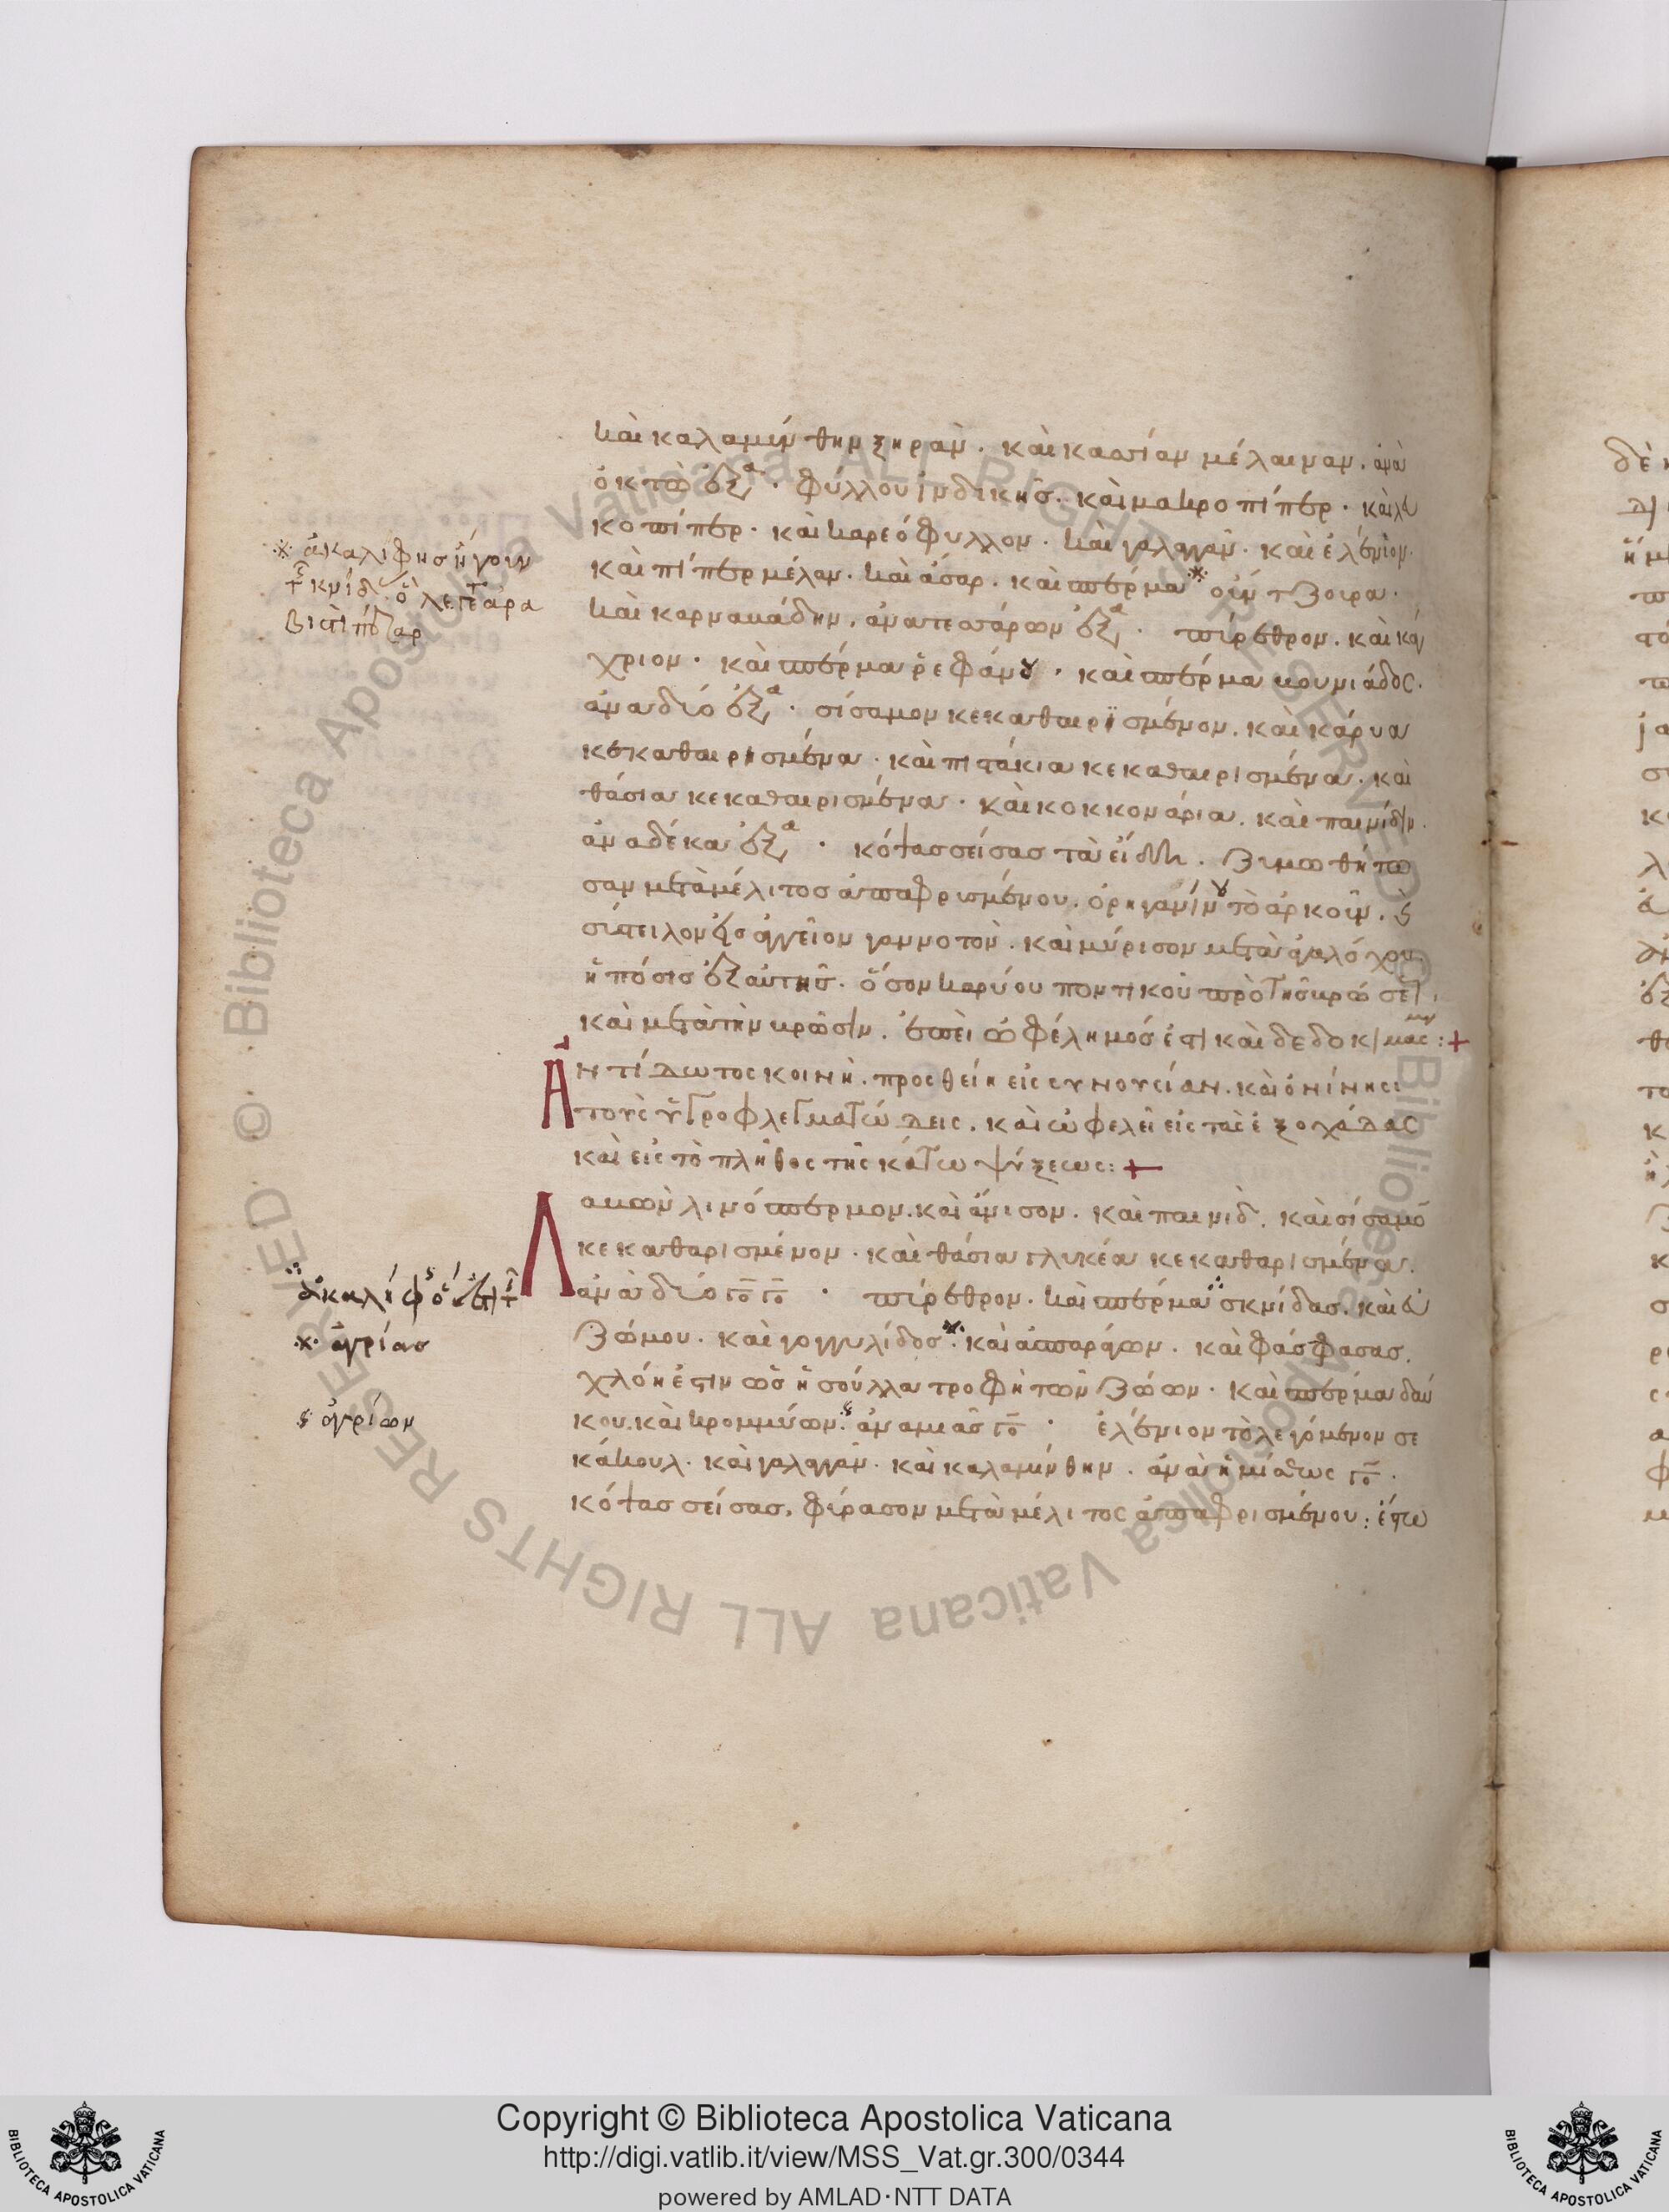 καὶ καλαμίνθην ξηρὰν. καὶ κασσίαν μέλαιναν. ἀνὰ
ὀκτὼ ὀξα. φύλλου ἰνδικῆσ. καὶ μακροπίπερ. καὶ λευ
κοπίπερ. καὶ καρεόφυλλον. καὶ γαλαγγὰν. καὶ ἑλένιον.
καὶ πίπερ μέλαν. καὶ ἄσαρ. καὶ σπέρμα
καὶ καρναμάδην. ἀνὰ τεσσάρων ὀξα. πύρεθρον. καὶ κά
χριον. καὶ σπέρμα ῥεφάνου. καὶ σπέρμα κουνιάδος.
ἀνὰ δύο ὀξα. σίσαμον κεκαθαιρισμένον. καὶ κάρυα
κεκαθαιρισμένα. καὶ πιτάκια κεκαθαιρισμένα. καὶ
θάσια κεκαθαιρισμένα. καὶ κοκκονάρια. καὶ παινίδιν.
ἀνὰ δέκα ὀξα. κόψας σείσας τὰ εἴδη. ζυμωθήτω
σαν μετὰ μέλιτος ἀπαφρισμένου. τὸ ἀρκοῦν.
στεῖλον εἰς ἀγγεῖον γανοτὸν. καὶ μύρισον μετὰ ἀγαλόχου.
ἡ πόσις ἐξ αὐτῆσ. ὅσον καρύου ποντικοῦ πρὸ τῆς
καὶ μετὰ τὴν κρᾶσιν. ἐπεὶ ὠφέλημός ἐστι καὶ
Ἀντίδωτος κοινὴ. προσθείη εἰς συνουσίαν. καὶ ὀνίνησι
τοὺς ὑγροφλεγματώδεις. καὶ ὠφελεῖ εἰς τὰς ἐξοχάδας
καὶ εἰς τὸ πλῆθος τῆς κάτω ψύξεως:
Λαμὼν λινόσπερμον. καὶ ἄνισον. καὶ παινιδ. καὶ σίσαμο
κεκαθαρισμένον. καὶ θάσια γλυκέα κεκαθαρισμένα.
ἀνὰ δύο πύρεθρον. καὶ σπέρμα σκνίδας. καὶ εὐ
ζώμου. καὶ γογγυλίδος. καὶ ἀσπαράγων. καὶ φάσφασας.
χλόη ἐστὶν ὡς ἡ σούλλα τροφὴ τῶν ζώων. καὶ σπέρμα δαύ
κου. καὶ κρομμύων. ἀνὰ μιᾶς ἑλένιον τὸ λεγόμενον σε
κάκουλ. καὶ γαλαγγὰν. καὶ καλαμίνθην. ἀνὰ ἡμίσεως
κόψας σείσας, φύρασον μετὰ μέλιτος ἀπαφρισμένου: ἔστω
ἀκαλίφης ἤγουν
ἀγρίας
ἀγρίων
© Biblioteca Apostolica Vaticana ALL RIGHTS RESERVED
© Biblioteca Apostolica Vaticana ALL RIGHTS RESERVED
Copyright © Biblioteca Apostolica Vaticana
http://digi.vatlib.it/view/MSS_Vat.gr.300/0344
powered by AMLAD·NTT DATA
BIBLIOTECA APOSTOLICA VATICANA
BIBLIOTECA APOSTOLICA VATICANA